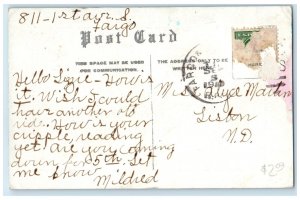 811-1st ave. S.
Fargo
Post Card
THIS SPACE MAY BE USED FOR COMMUNICATION.
THE ADDRESS ONLY TO BE WRITTEN HERE
Hello Lizie- How is
it. Wish I could
have another
ride. How is your
cripple, reading
yet. are you coming
down for 5th. Let
me know
Mildred
FARGO
Miss
Lisbon
N.D.
$2.00